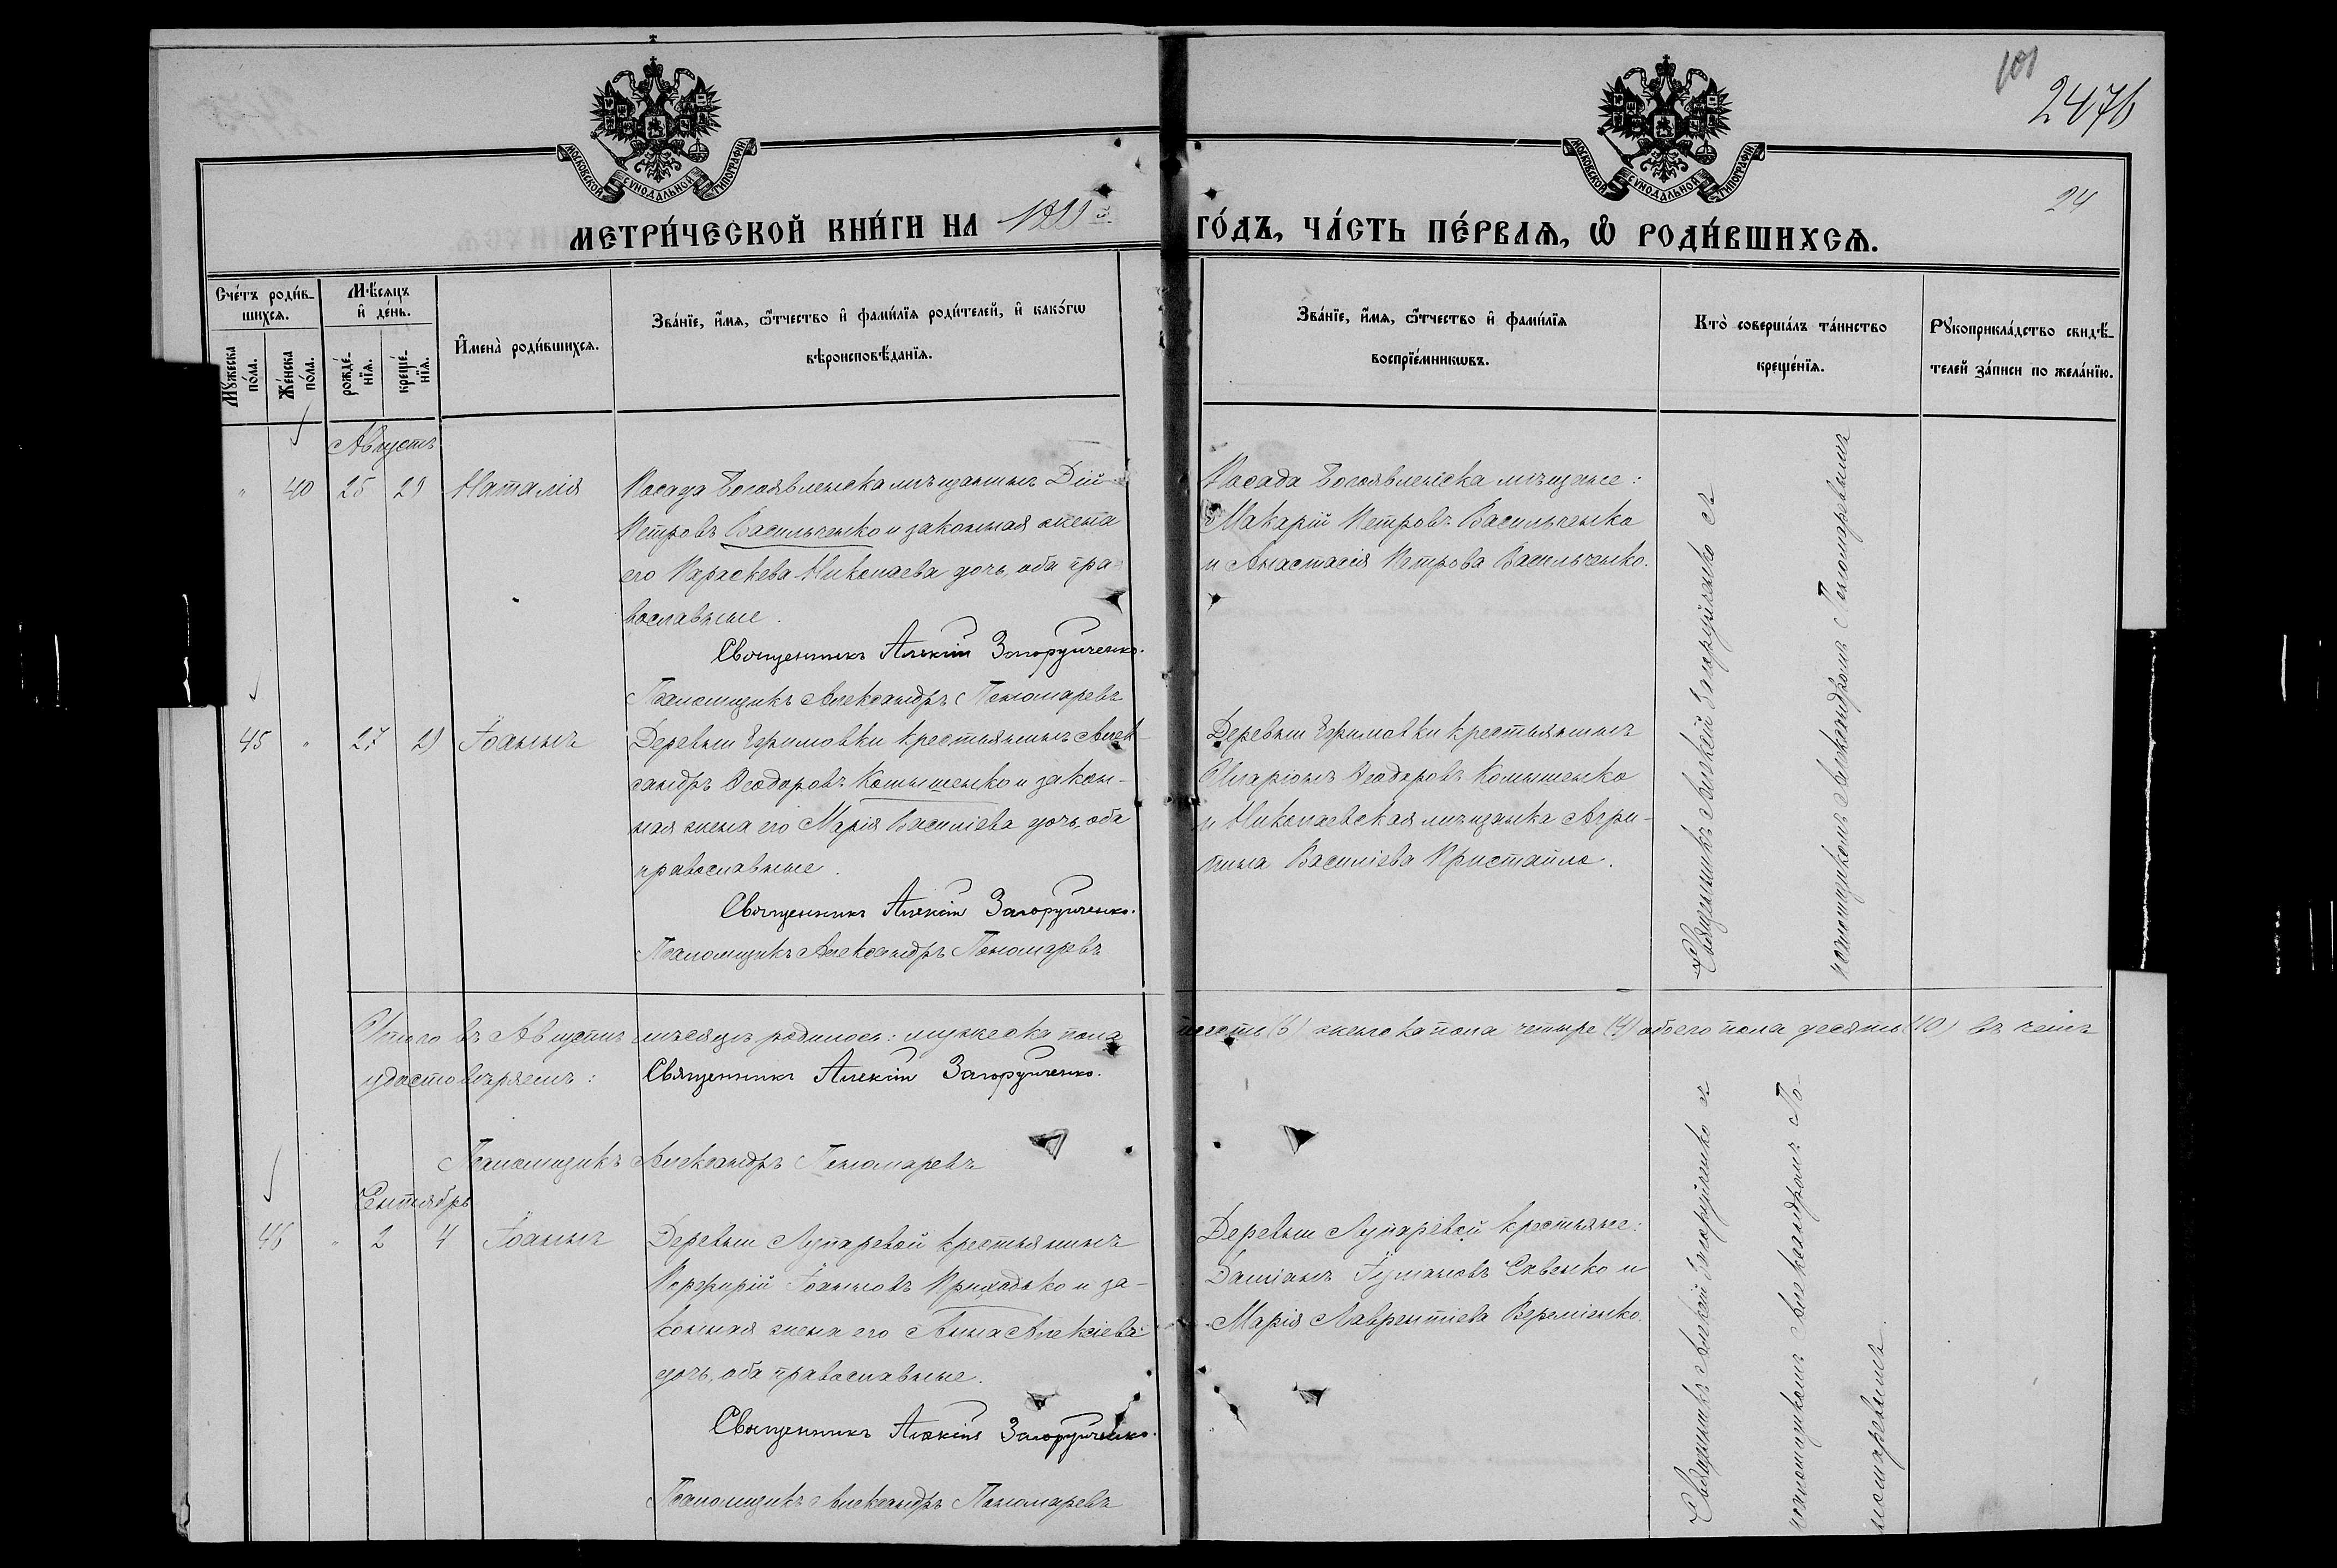 101
2476
24
МОСКОВСКОЙ СѴНОДАЛЬНОЙ ТИПОГРАФІИ
МОСКОВСКОЙ СѴНОДАЛЬНОЙ ТИПОГРАФІИ
МЕТРИ́ЧЕСКОЙ КНИ́ГИ НА 1889й ГО́ДЪ, ЧА́СТЬ ПЕ́РВАѦ, Ѡ РОДИ́ВШИХСѦ.
Сче́тъ роди́в-
шихсѧ.
Мꙋ́жеска по́ла.
Же́нска по́ла.
Мѣ́сяцъ и҆ де́нь.
рожде́-
нїѧ.
креще́-
нїѧ.
И҆мена̀ роди́вшихсѧ.
Зва́нїе, и҆́мѧ, ѻ҆́тчество и҆ фами́лїѧ роди́телей, и҆ како́гѡ
вѣроисповѣ́данїѧ.
Зва́нїе, и҆́мѧ, ѻ҆́тчество и҆ фами́лїѧ
воспрїе́мникѡвъ.
Кто̀ соверша́лъ та́инство
креще́нїѧ.
Рꙋкоприкла́дство свидѣ́-
телей за́писи по жела́нїю.
Августъ
" 40 25 29 Наталія
Посада Богоявленска мѣщанинъ Дій
Петровъ Васильченко и законная жена
его Параскева Николаева дочь, оба пра-
вославные.
Священникъ Алексій Загоруйченко.
Псаломщикъ Александръ Пономаревъ
Посада Богоявленска мѣщане:
Макарій Петровъ Васильченко
и Анастасія Петрова Васильченко.
45 " 27 29 Іоаннъ
Деревни Ефимовки крестьянинъ Алек
сандръ Ѳеодоровъ Комышенко и закон-
ная жена его Марія Василіева дочь, оба
православные.
Священникъ Алексій Загоруйченко.
Псаломщикъ Александръ Пономаревъ
Деревни Ефимовки крестьянинъ
Иларіонъ Ѳеодоровъ Комышенко
и Николаевская мѣщанка Агри-
пина Василіева Пристайло.
Священникъ Алексій Загоруйченко съ
псаломщикомъ Александромъ Пономаревымъ
Итого въ Августѣ мѣсяцѣ родилось: мужеска пола шесть (6) женска пола четыре (4) обоего пола десять (10) въ чемъ
удостовѣряемъ: Священникъ Алексій Загоруйченко.
Псаломщикъ Александръ Пономаревъ
Сентябрь
46 " 2 4 Іоаннъ
Деревни Лупаревой крестьянинъ
Порфирій Іоанновъ Приходько и за-
конная жена его Анна Алексіева
дочь, оба православные.
Священникъ Алексій Загоруйченко.
Псаломщикъ Александръ Пономаревъ
Деревни Лупаревой крестьяне:
Даміанъ
и
Марія Лаврентіева Веремѣенко.
Священникъ Алексій Загоруйченко съ
псаломщикомъ Александромъ По-
номаревымъ.